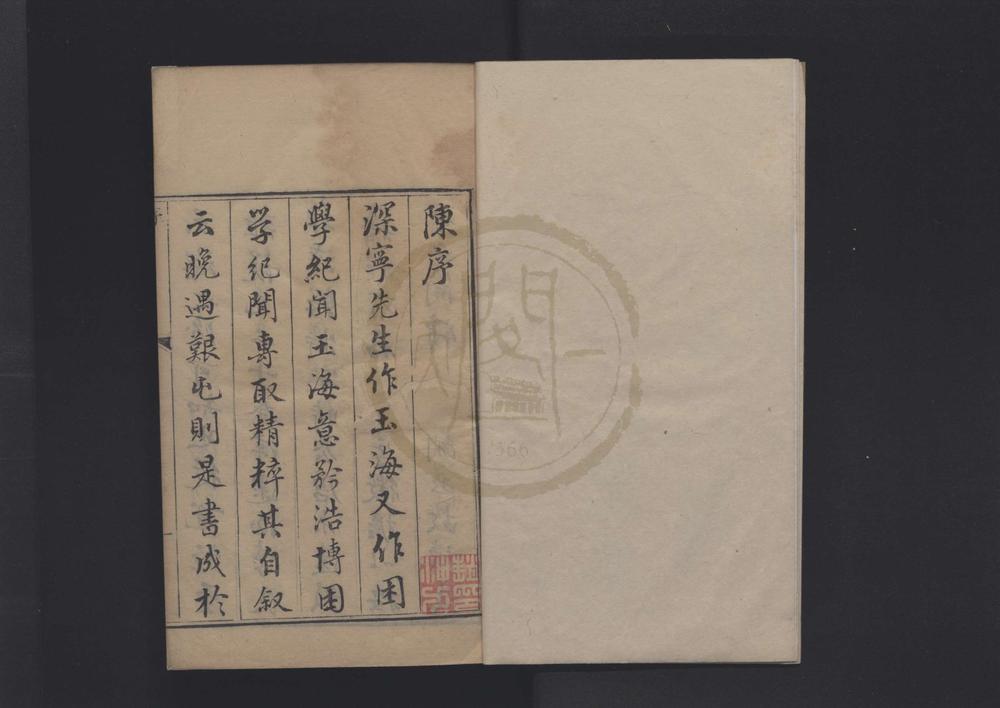 陳序
深寧先生作玉海又作困
學紀聞玉海意矜浩博困
学紀聞專取精粹其自叙
云晚遇艱屯則是書成於